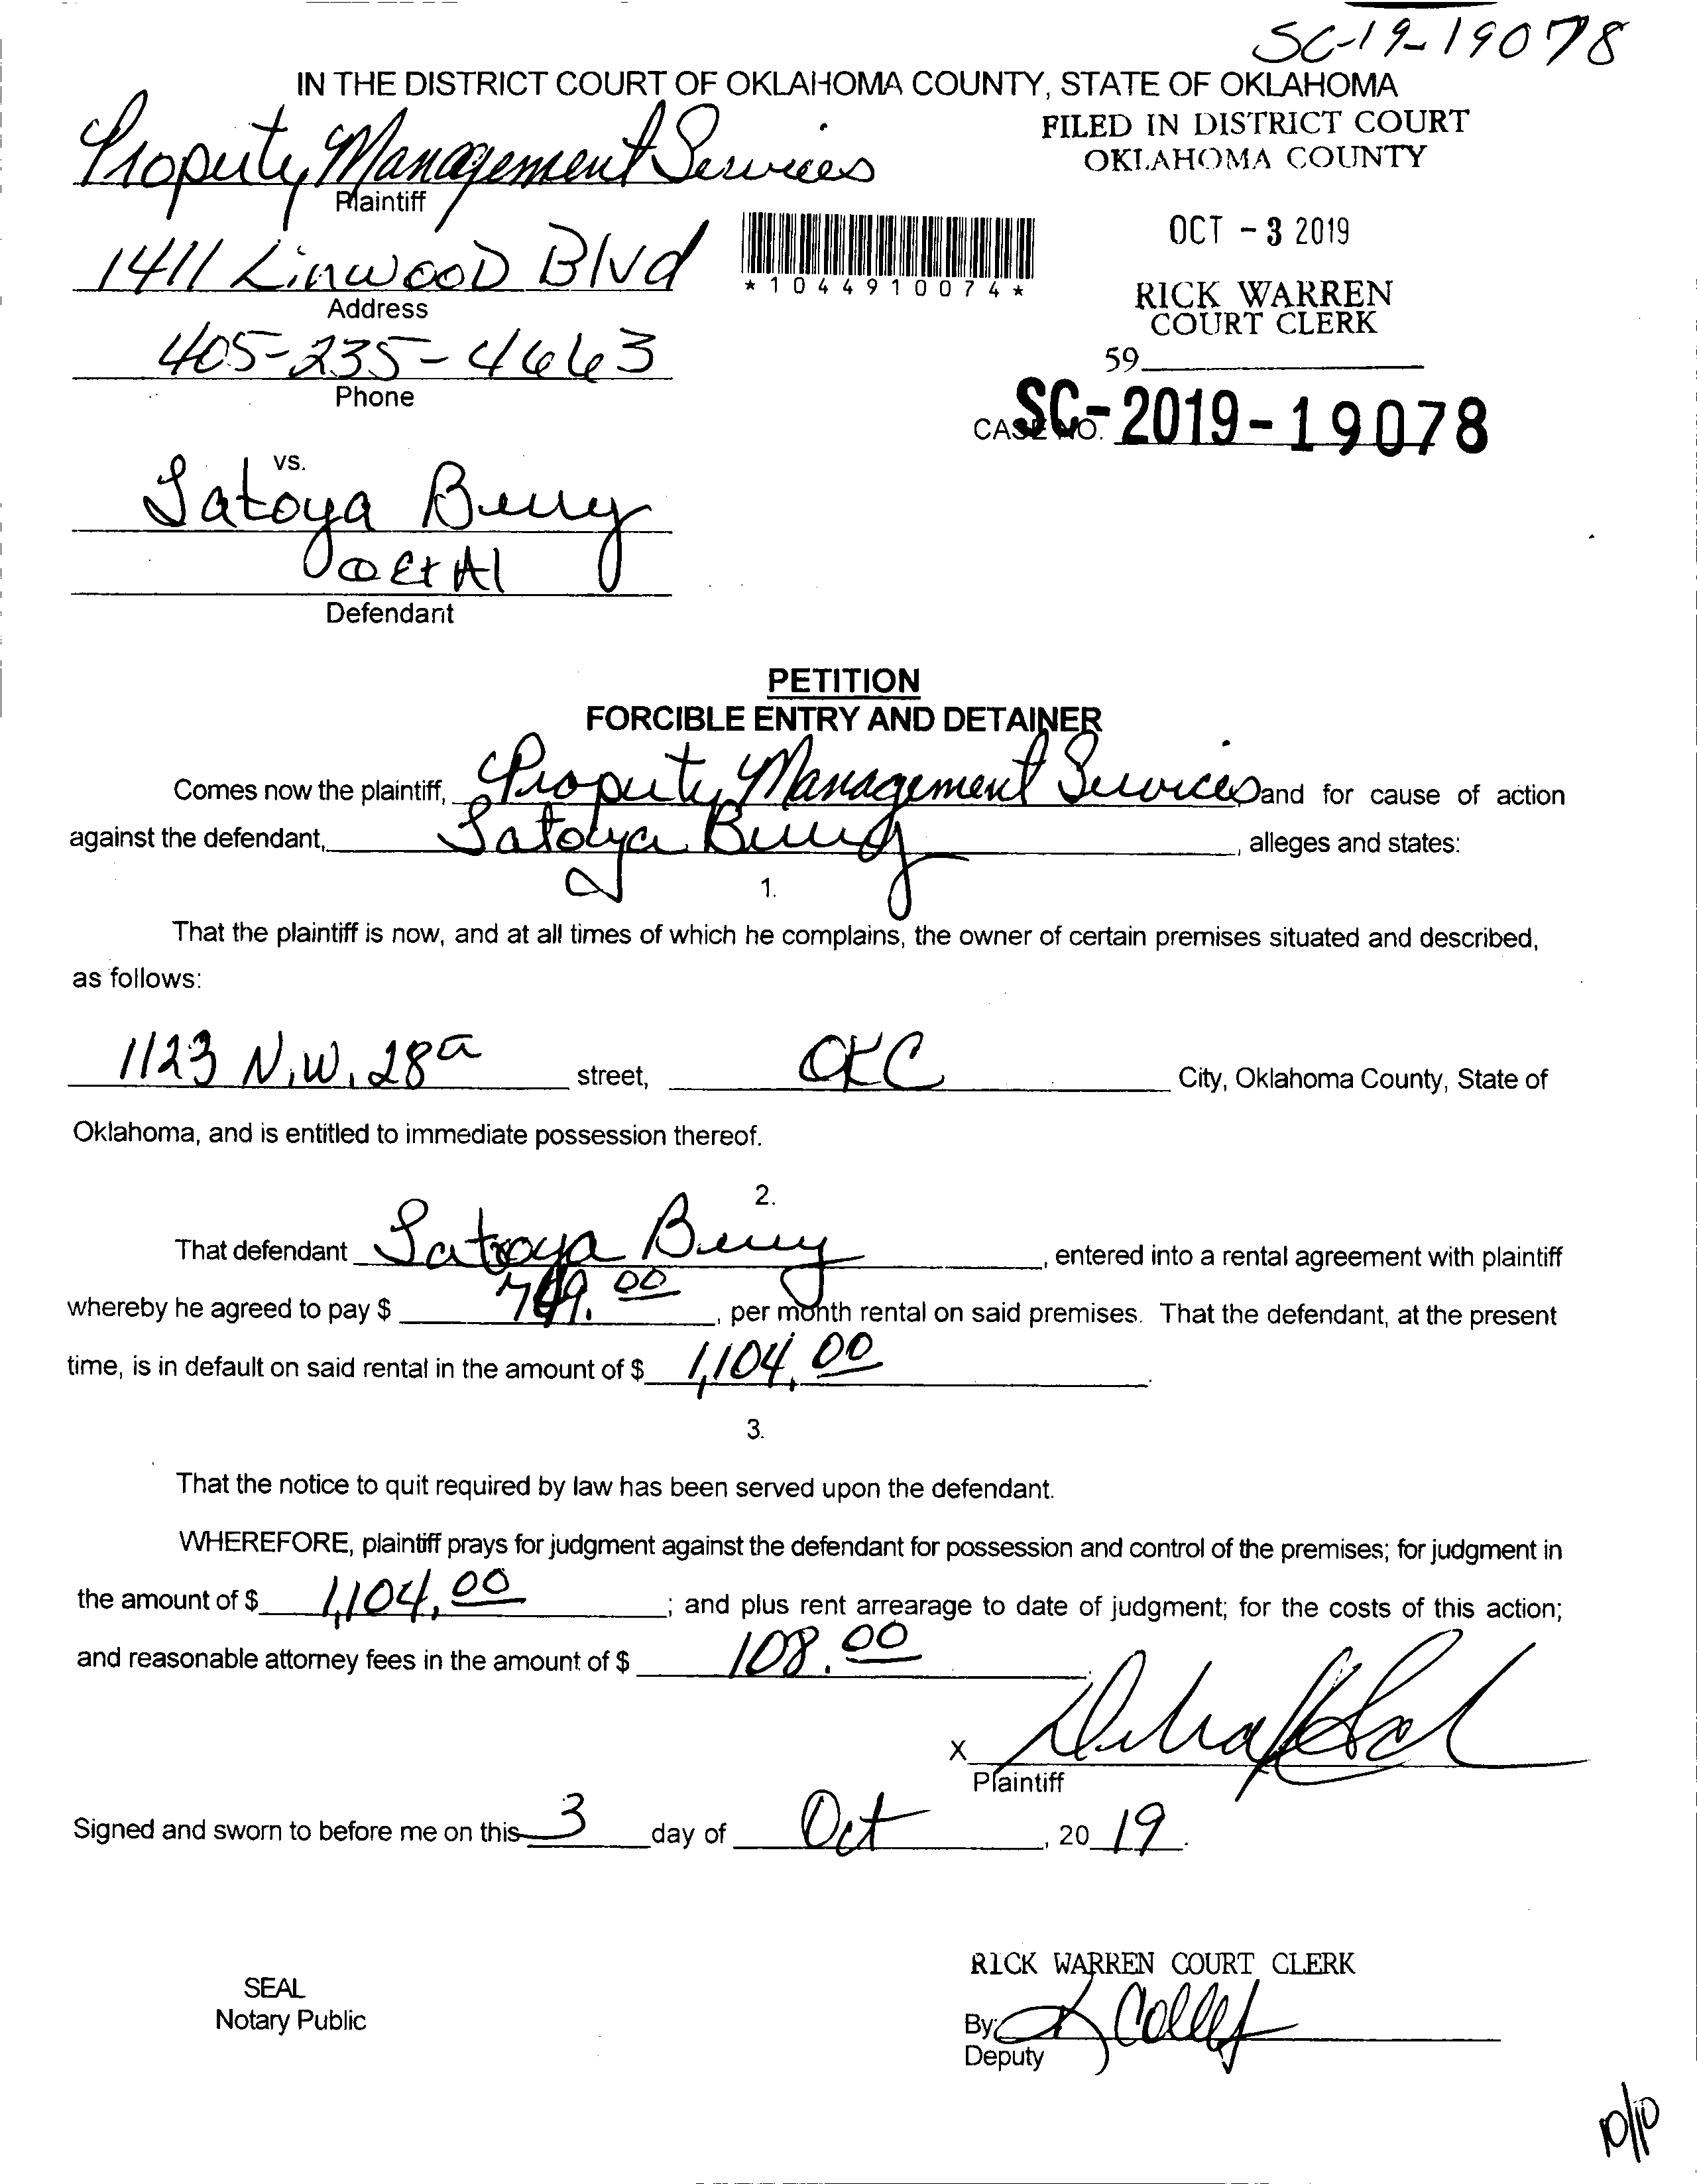 SC-19-19078
IN THE DISTRICT COURT OF OKLAHOMA COUNTY, STATE OF OKLAHOMA
FILED IN DISTRICT COURT
OKLAHOMA COUNTY
Property Management Services
Plaintiff
OCT - 3 2019
1411 Linwood Blvd
*1044910074*
Address
RICK WARREN
COURT CLERK
405-235-4663
Phone
59
CASE NO. SC-2019-19078
vs.
Latoya Berry
Et Al
Defendant
PETITION
FORCIBLE ENTRY AND DETAINER
Comes now the plaintiff, Property Management Services and for cause of action
against the defendant, Latoya Berry, alleges and states:
1.
That the plaintiff is now, and at all times of which he complains, the owner of certain premises situated and described,
as follows:
1123 N.W. 28 street, OKC City, Oklahoma County, State of
Oklahoma, and is entitled to immediate possession thereof.
2.
That defendant Latoya Berry, entered into a rental agreement with plaintiff
whereby he agreed to pay $ , per month rental on said premises. That the defendant, at the present
time, is in default on said rental in the amount of $ 1,104.00.
3.
That the notice to quit required by law has been served upon the defendant.
WHEREFORE, plaintiff prays for judgment against the defendant for possession and control of the premises; for judgment in
the amount of $ 1,104.00; and plus rent arrearage to date of judgment; for the costs of this action;
and reasonable attorney fees in the amount of $ 108.00.
X
Plaintiff
Signed and sworn to before me on this 3 day of Oct, 2019.
RICK WARREN COURT CLERK
SEAL
Notary Public
By:
Deputy
10/10